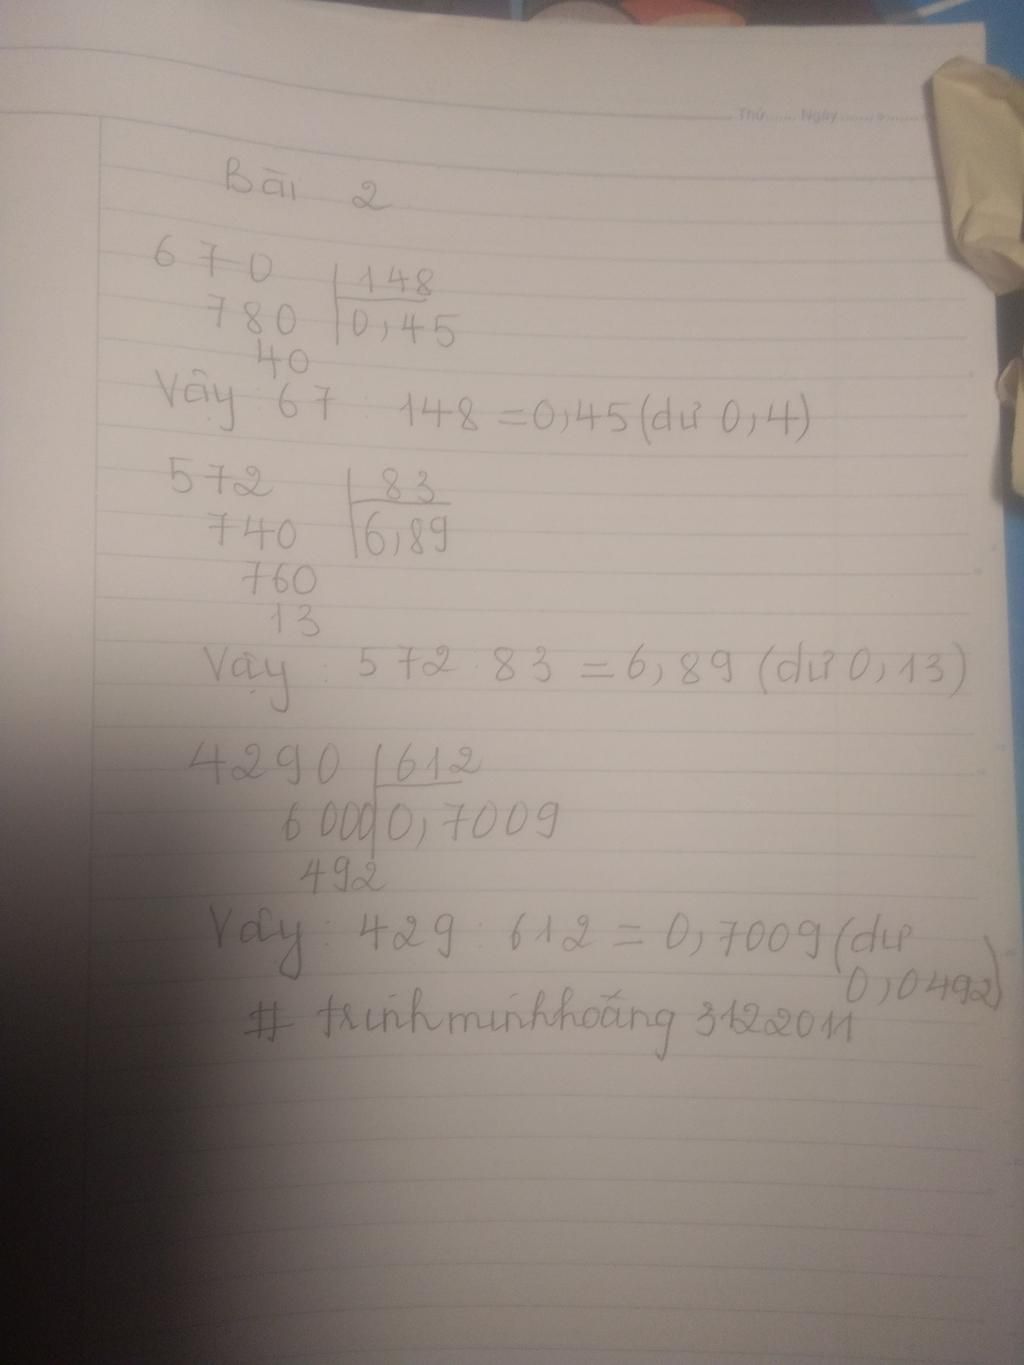 Thứ...... Ngày............
Bài 2
670 148
780 0,45
40
Vậy : 67 : 148 = 0,45 (dư 0,4)
572 83
740 6,89
760
13
Vậy : 572 : 83 = 6,89 (dư 0,13)
4290 612
6000 0,7009
492
Vây : 429 : 612 = 0,7009 (dư
0,0492)
# trinhminhhoàng 3122011